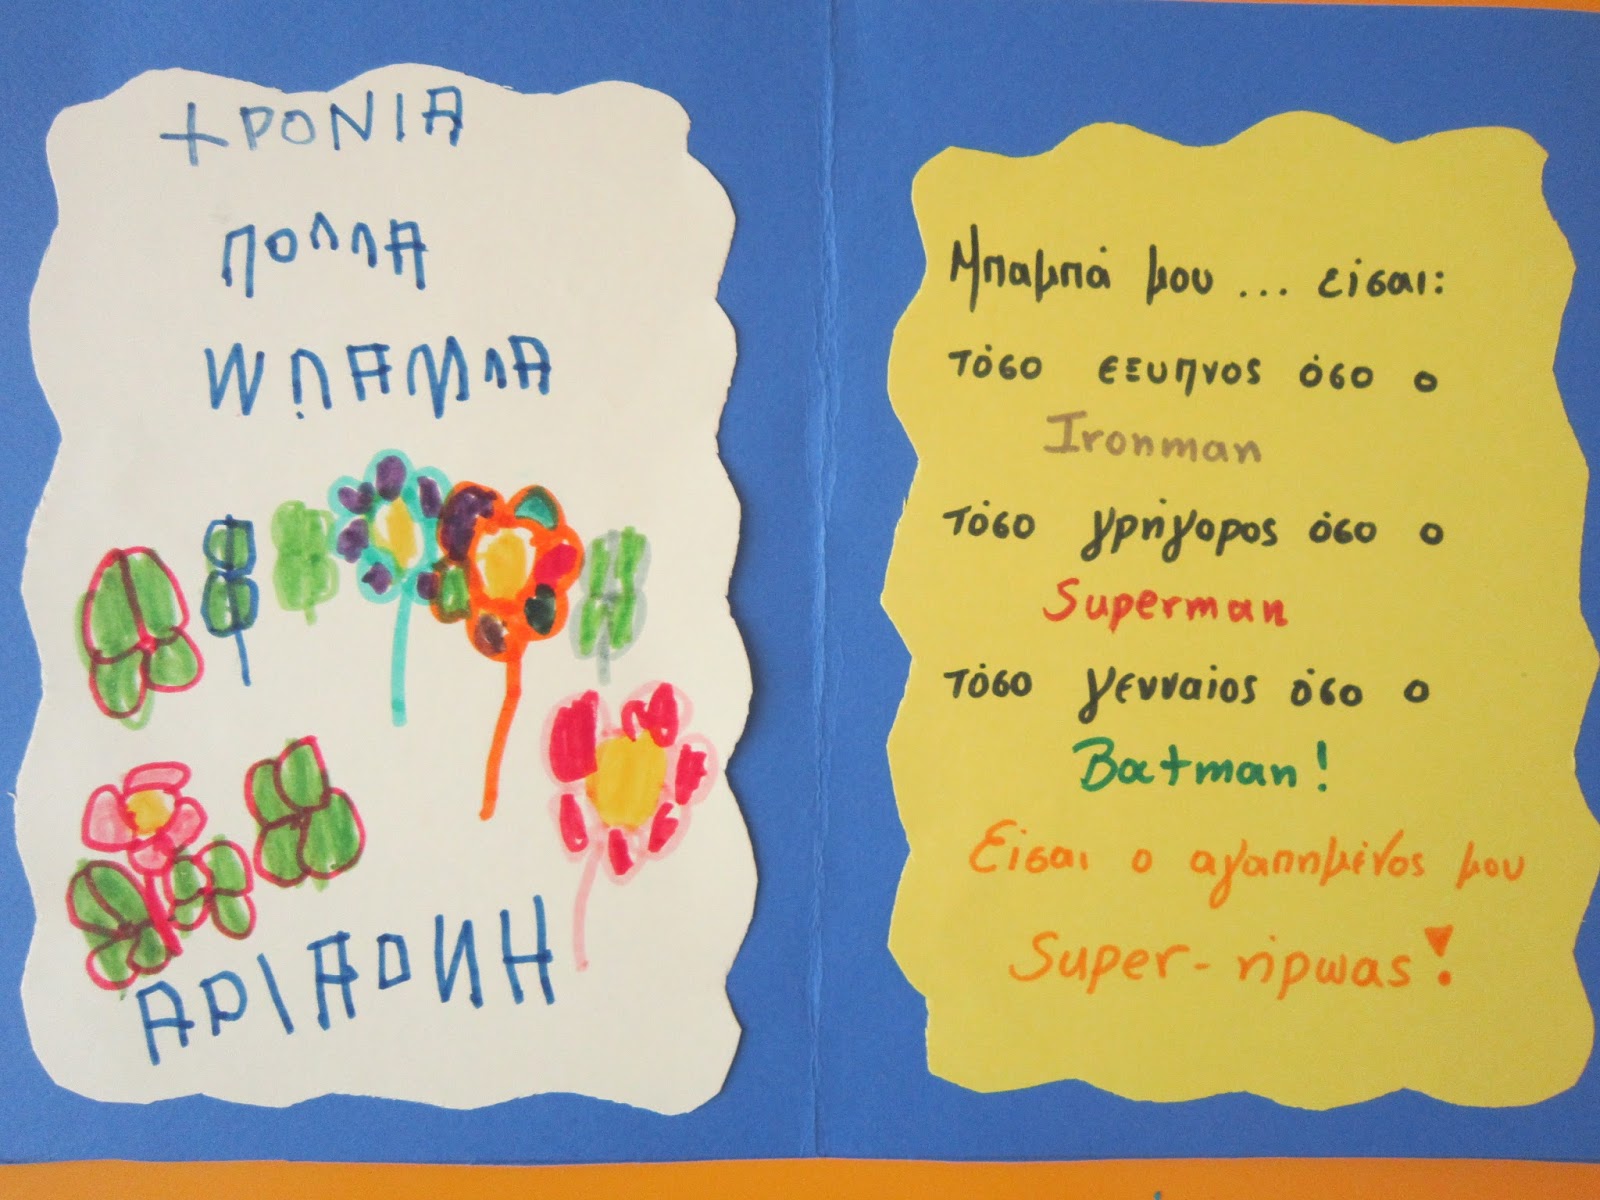 ΧΡΟΝΙΑ
ΠΟΛΛΑ
ΜΠΑΜΠΑ
ΑΡΙΑΔΝΗ
Μπαμπά μου ... είσαι:
τόσο εξυπνος όσο ο
Ironman
τόσο γρήγορος όσο ο
Superman
τόσο γενναίος όσο ο
Batman!
Είσαι ο αγαπημένος μου
Super-ήρωας!